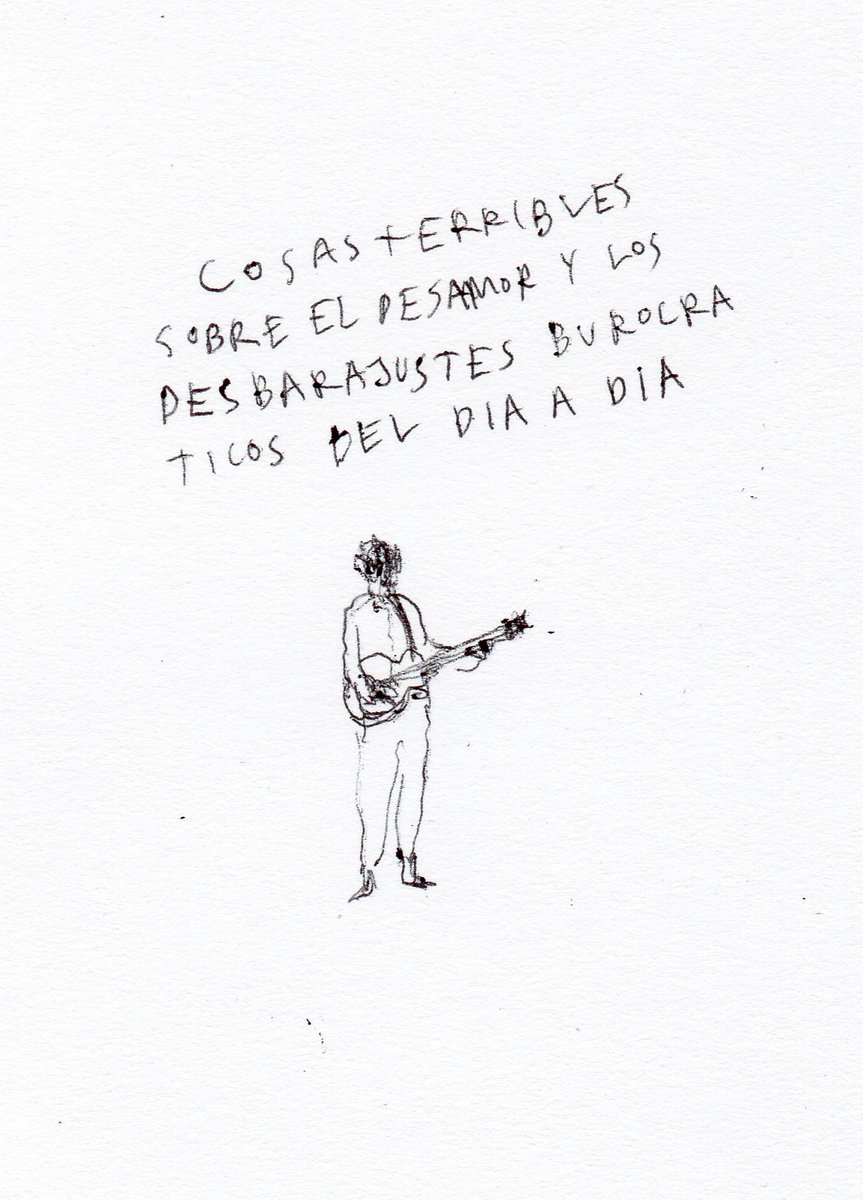 COSAS TERRIBLES
SOBRE EL DESAMOR Y LOS
DESBARAJUSTES BUROCRA
TICOS DEL DIA A DIA